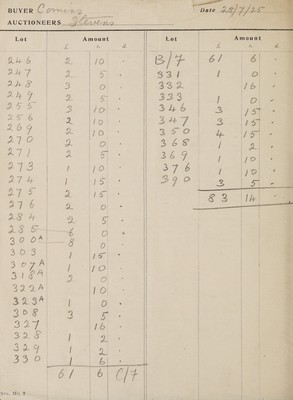 BUYER Comyns Date 28/7/25
AUCTIONEERS Stevens
Lot Amount
£ s. d.
246 2 10 -
247 2 5 -
248 3 0 -
249 2 5 -
255 3 10 -
256 2 10 -
269 2 10 -
270 2 0 -
271 2 5 -
273 1 10 -
274 1 15 -
275 2 15 -
276 2 0 -
284 2 5 -
285 6 0 -
300A 8 0 -
303 1 15 -
307A 1 10 -
318A 2 0 -
322A 10 -
323A 1 0 -
308 3 5 -
327 16 -
328 1 2 -
329 1 2 -
330 1 6 -
61 6 C/7
Lot Amount
£ s. d.
B/7 61 6 -
331 1 0 -
332 16 -
333 1 0 -
346 3 15 -
347 3 15 -
350 4 15 -
368 1 2 -
369 1 10 -
376 1 10 -
390 3 5 -
83 14 -